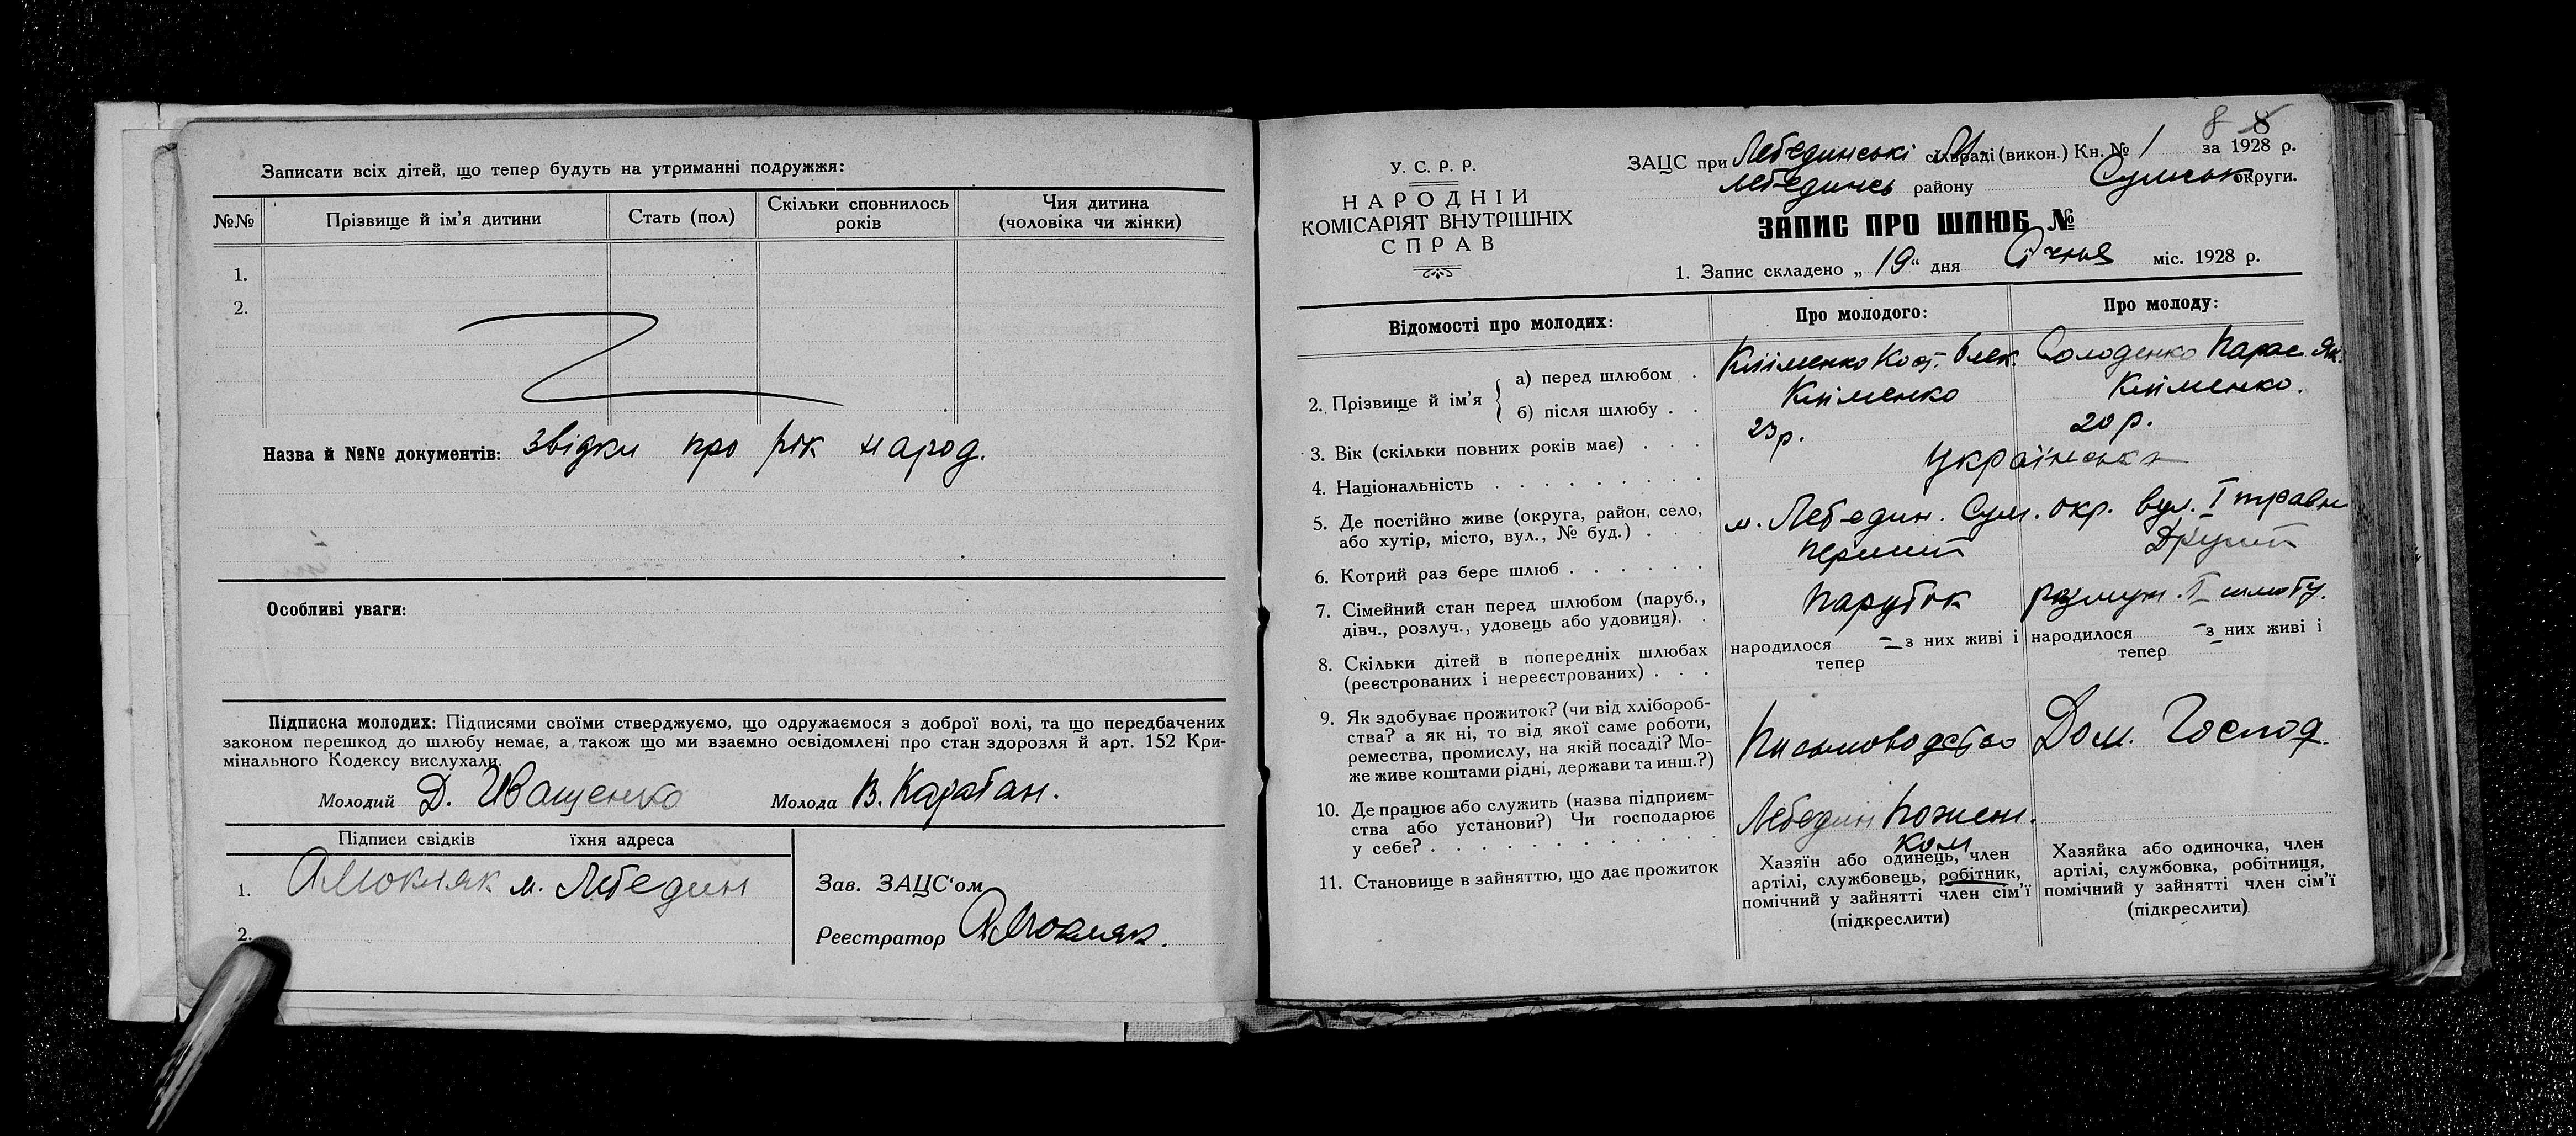 Записати всіх дітей, що тепер будуть на утриманні подружжя:
№№ Прізвище й ім'я дитини Стать (пол) Скільки сповнилось років Чия дитина (чоловіка чи жінки)
1.
2.
Назва й №№ документів: Звідки про рік народ.
Особливі уваги:
Підписка молодих: Підписями своїми стверджуємо, що одружаємося з доброї волі, та що передбачених
законом перешкод до шлюбу немає, а також що ми взаємно освідомлені про стан здоровля й арт. 152 Кри-
мінального Кодексу вислухали.
Молодий Д. Иващенко Молода В. Карабан.
Підписи свідків їхня адреса
1. АМокляк м. Лебедин
2.
Зав. ЗАЦС'ом
Реєстратор АМокляк.
8 8
У. С. Р. Р.
НАРОДНІЙ
КОМІСАРІЯТ ВНУТРІШНІХ
СПРАВ
ЗАЦС при Лебединські сільраді (викон.) Кн. № 1 за 1928 р.
Лебединсь району Сумськ округи.
ЗАПИС ПРО ШЛЮБ №
1. Запис складено „ 19 “ дня Січня міс. 1928 р.
Відомості про молодих: Про молодого: Про молоду:
2. Прізвище й ім'я
а) перед шлюбом . Кліменко Кост. Олек. Солоденко Парас. Як.
б) після шлюбу . . Кліменко Кліменко.
3. Вік (скільки повних років має) . . . 23 р. 20 р.
4. Національність . . . . . . . . . Українська
5. Де постійно живе (округа, район, село,
або хутір, місто, вул., № буд.) . . . м. Лебедин. Сум. окр. вул. I травн
6. Котрий раз бере шлюб . . . . . . Перший Другий
7. Сімейний стан перед шлюбом (паруб.,
дівч., розлуч., удовець або удовиця). . Парубок
8. Скільки дітей в попередніх шлюбах
(реєстрованих і нереєстрованих) . . .
народилося – з них живі і тепер
народилося – з них живі і тепер
9. Як здобуває прожиток? (чи від хлібороб-
ства? а як ні, то від якої саме роботи,
ремества, промислу, на якій посаді? Мо-
же живе коштами рідні, держави та инш.?)
Письмоводство Дом. Господ.
10. Де працює або служить (назва підприєм-
ства або установи?) Чи господарює
у себе? . . . . . . . . . . . .
Лебедин
ком
11. Становище в зайняттю, що дає прожиток
Хазяїн або одинець, член
артілі, службовець, робітник,
помічний у зайнятті член сім'ї
(підкреслити)
Хазяйка або одиночка, член
артілі, службовка, робітниця,
помічний у зайнятті член сім'ї
(підкреслити)